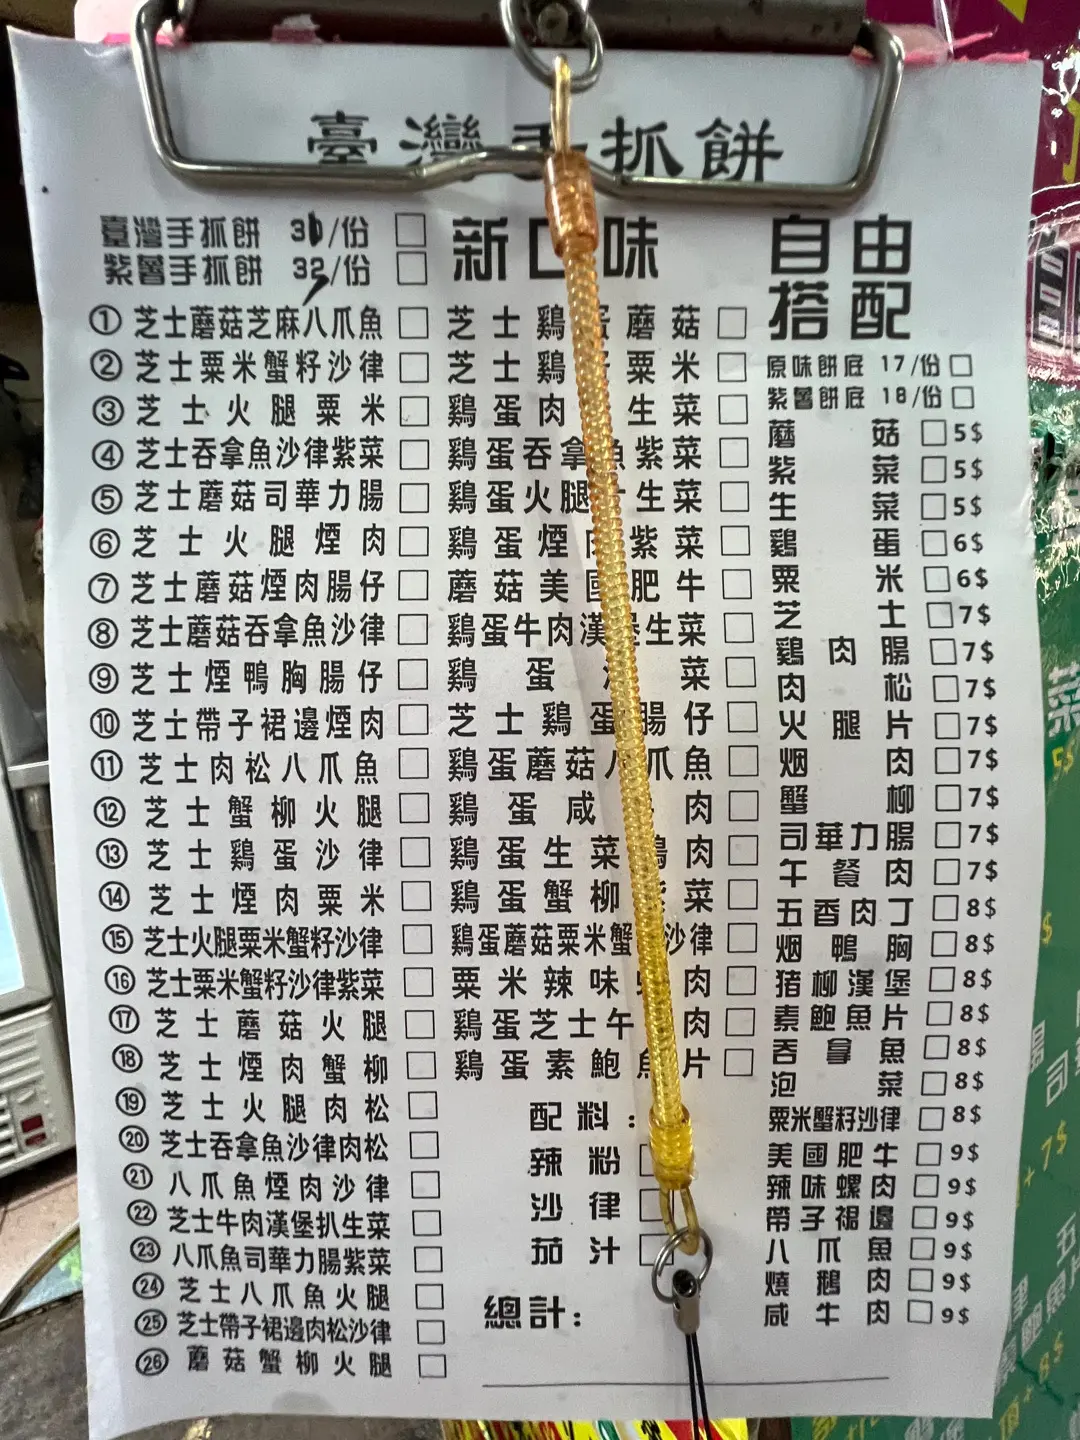 臺灣手抓餅
臺灣手抓餅 3 /份
紫薯手抓餅 32/份
① 芝士蘑菇芝麻八爪魚
② 芝士粟米蟹籽沙律
③ 芝士火腿粟米
④ 芝士吞拿魚沙律紫菜
⑤ 芝士蘑菇司華力腸
⑥ 芝士火腿煙肉
⑦ 芝士蘑菇煙肉腸仔
⑧ 芝士蘑菇吞拿魚沙律
⑨ 芝士煙鴨胸腸仔
⑩ 芝士帶子裙邊煙肉
⑪ 芝士肉松八爪魚
⑫ 芝士蟹柳火腿
⑬ 芝士鷄蛋沙律
⑭ 芝士煙肉粟米
⑮ 芝士火腿粟米蟹籽沙律
⑯ 芝士粟米蟹籽沙律紫菜
⑰ 芝士蘑菇火腿
⑱ 芝士煙肉蟹柳
⑲ 芝士火腿肉松
⑳ 芝士吞拿魚沙律肉松
㉑ 八爪魚煙肉沙律
㉒ 芝士牛肉漢堡扒生菜
㉓ 八爪魚司華力腸紫菜
㉔ 芝士八爪魚火腿
㉕ 芝士帶子裙邊肉松沙律
㉖ 蘑菇蟹柳火腿
新口味
芝士鷄蛋蘑菇
芝士鷄 粟米
鷄蛋肉 生菜
鷄蛋吞拿魚紫菜
鷄蛋火腿 生菜
鷄蛋煙肉紫菜
蘑菇美國肥牛
鷄蛋牛肉漢堡生菜
鷄蛋 菜
芝士鷄蛋腸仔
鷄蛋蘑菇八爪魚
鷄蛋咸 肉
鷄蛋生菜 肉
鷄蛋蟹柳紫菜
鷄蛋蘑菇粟米蟹 沙律
粟米辣味 肉
鷄蛋芝士午 肉
鷄蛋素鮑魚片
配料：
辣粉
沙律
茄汁
總計：
自由
搭配
原味餅底 17/份
紫薯餅底 18/份
蘑菇 5$
紫菜 5$
生菜 5$
鷄蛋 6$
粟米 6$
芝士 7$
鷄肉腸 7$
肉松 7$
火腿片 7$
烟肉 7$
蟹柳 7$
司華力腸 7$
午餐肉 7$
五香肉丁 8$
烟鴨胸 8$
猪柳漢堡 8$
素鮑魚片 8$
吞拿魚 8$
泡菜 8$
粟米蟹籽沙律 8$
美國肥牛 9$
辣味螺肉 9$
帶子裙邊 9$
八爪魚 9$
燒鵝肉 9$
咸牛肉 9$